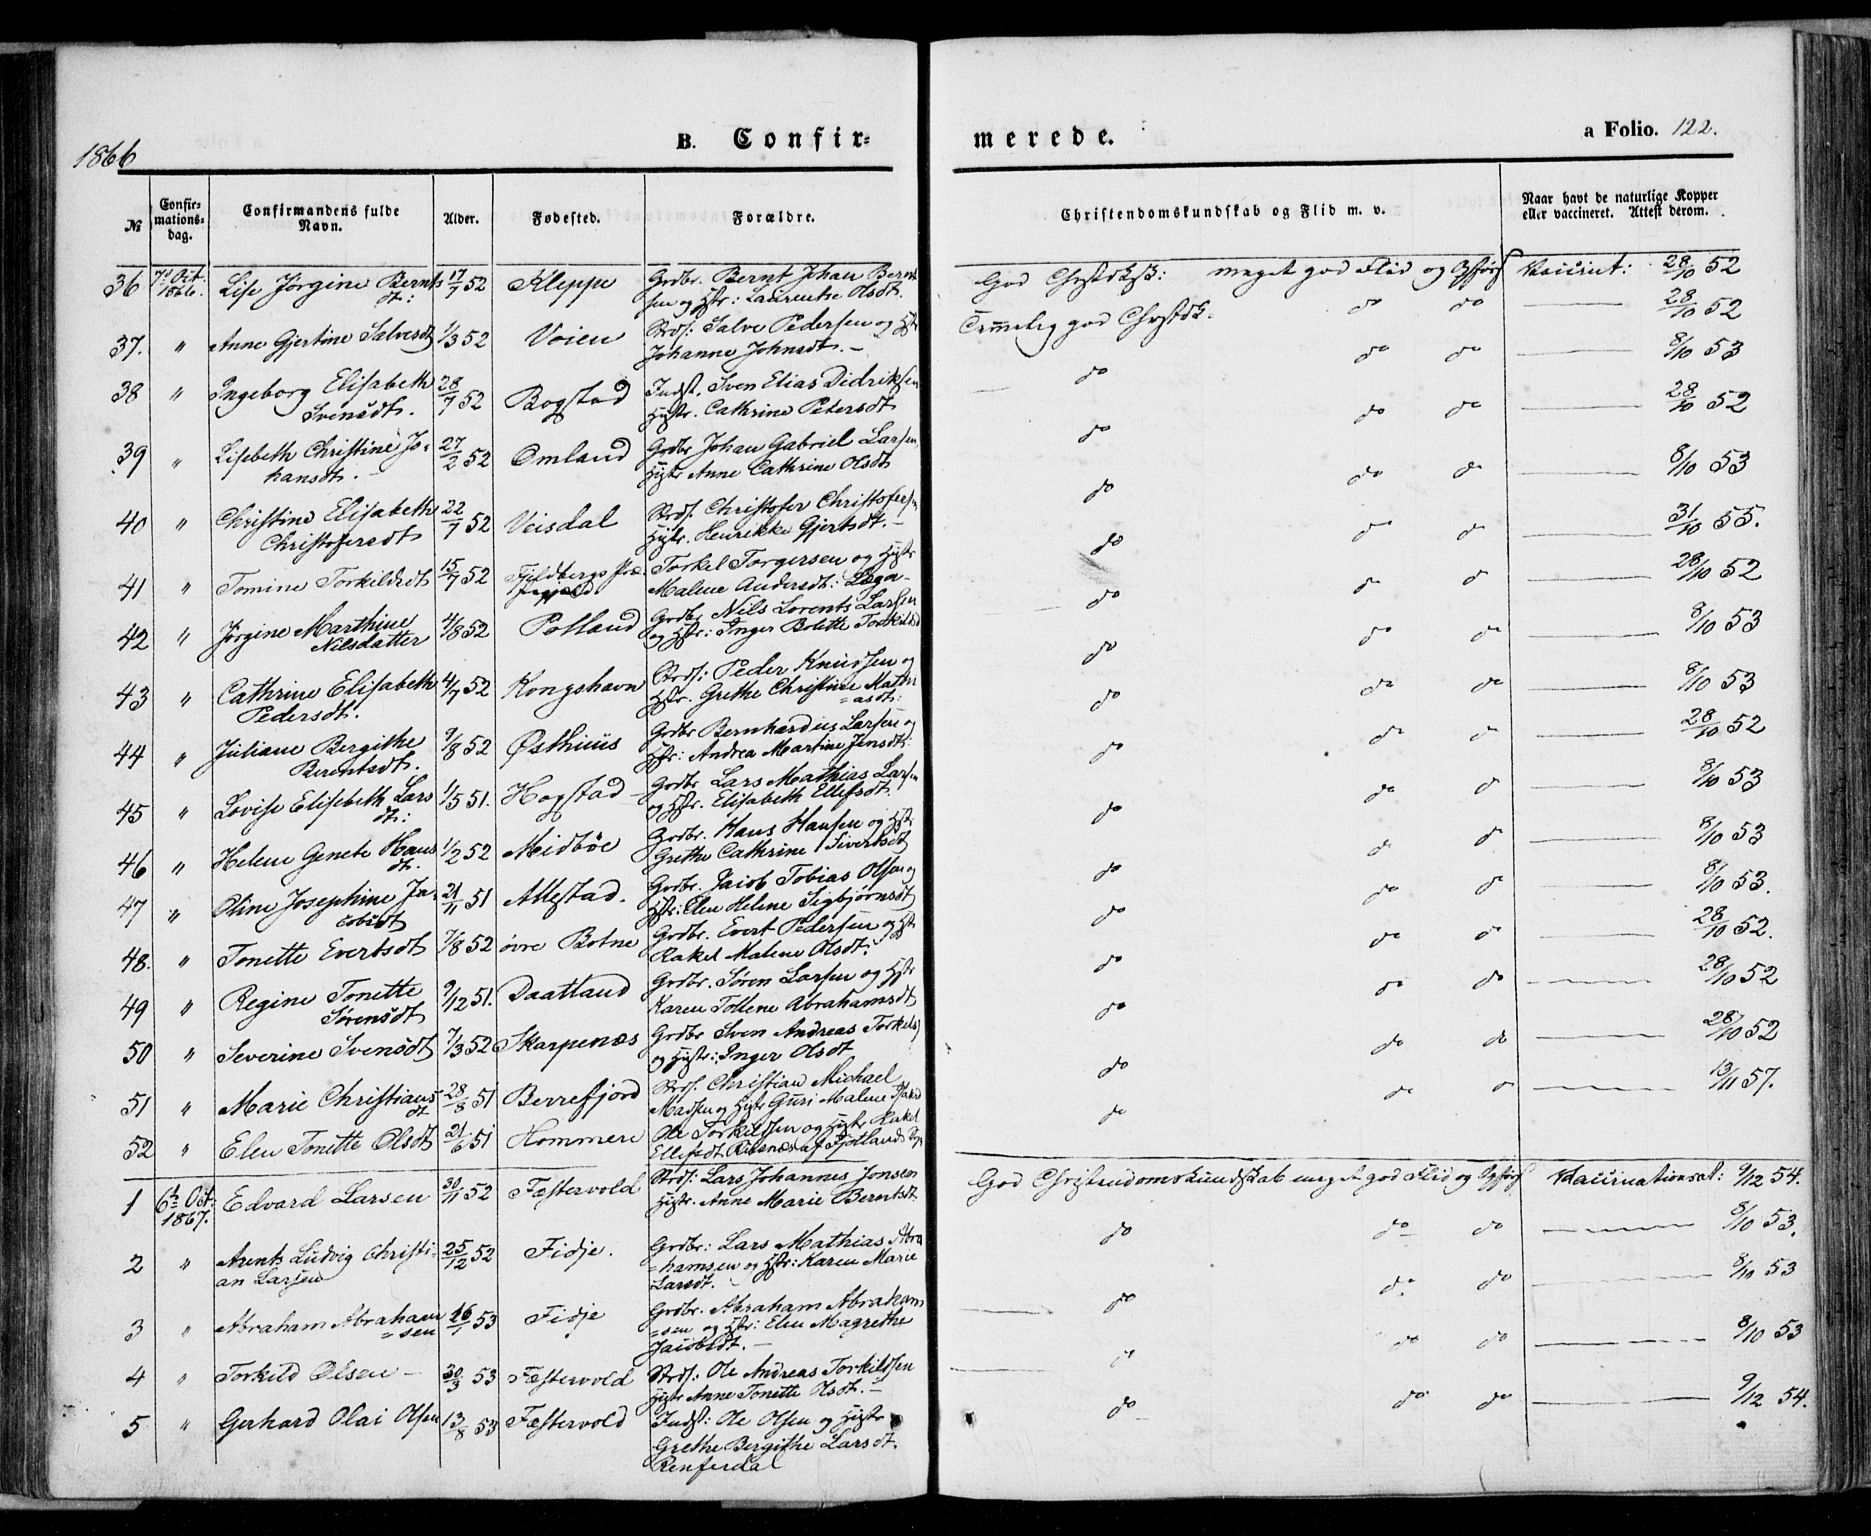 1866
B. Confir=
merede.
a Folio. 122.
№
Confir=
mations=
dag.
Confirmandens fulde
Navn.
Alder.
Fødested.
Forældre.
Christendomskundskab og Flid m. v.
Naar havt de naturlige Kopper
eller vaccineret. Attest derom.
36 7de Oct. 1866. Lise Jörgine Bernts dt: 17/7 52 Kleppe Grdbr. Bernt Johan Bernt
sen og Hstr: Laurentse Olsdt. God meget god Flid og Opførs Vaccint: 28/10 52
37. " Anne Gjertine Salvesdt 1/3 52 Voien Strds: Salve Pedersen og Hstr
Johanne Johnsdt. – Temmelig god do do 28/10 52
38 " Ingeborg Elisabeth
Svensdt. 28/7 52 Bogstad Indst. Sven Elias Didriksen
Hustr. Cathrine Petersdt do do do 8/10 53
39 " Lisebeth Christine Jo=
hansdt. – 27/2 52 Omland Grdbr Johan Gabriel Larsen,
Hustr Anne Cathrine Olsdt do do do 28/10 52
40 " Christine Elisabeth
Christofersdt 22/7 52 Veisdal Strds. Christofer Christofersen
Hustr. Henrikke Gjertsdt. – do do do 8/10 53
41 " Tomine Torkildsdt 15/7 52 Fjeldbergs
Torkel Torgersen og Hustr
Malene Andersdt: do do do 31/10 55.
42 " Jörgine Marthine
Nilsdatter 4/8 52 Polland Grdbr Nils Lorents Larsen
og Hstr: Inger Bolette Torkilsd do do do 28/10 52
43 " Cathrine Elisabeth
Pedersdt. 4/7 52 Kongshavn Strds: Peder Knudsen og
Hstr. Grethe Christine Mathi
=asdt: do do do 8/10 53
44 " Juliane Bergithe
Berentsdt. 9/8 52 Østhuus Grdbr Bernhardus Larsen og
Hstr: Andrea Martine Jensdt: do do do 8/10 53
45 " Lovise Elisebeth Lars
dt: 1/5 51. Hogstad Grdbr Lars Mathias Larsen
og Hstr. Elisabeth Ellefsdt. do do do 28/10 52
46 " Helene Genete Hans
dt. 1/2 52 Midböe Grdbr. Hans Hansen og Hstr
Grethe Cathrine Sivertsdt do do do 8/10 53
47 " Oline Josephine Ja=
cobsdt 21/11 51 Allestad. Grdbr. Jacob Tobias Olsen og
Hstr: Elen Helene Sigbjörnsdt do do do 8/10 53
48. " Tonette Evertsdt 7/8 52 övre Botne Grdbr. Evert Pedersen og Hstr
Rakel Malene Olsdt. do do do 8/10 53.
49 " Regine Tonette
Sörensdt 9/12 51. Daatland Grdbr. Sören Larsen og Hstr
Karen Tollene Abrahamsdt do do do 28/10 52.
50 " Severine Svensdt 7/3 52 Skarpenæs Grdbr Sven Andreas Torkels
og Hustr: Inger Olsdt do do do 28/10 52
51 " Marie Christians
dt. 28/8 51 Berrefjord Strds. Christian Michael
Madsen og Hstr Guri Malene do do do 28/10 52
52 " Elen Tonette Olsdt 21/6 51 Hommere Ole Torkildsen og Hustr Rakel
Ellefsdt af Fjotlands do do do 13/11 57.
1 6te Oct. 1867. Edvard Larsen 30/11 52 Fæstervold Strds: Lars Johannes Jonsen
Hustr. Anne Marie Berntsdt God Christendomskundskab meget god Flid og Opførs Vaccinationsat: 9/12 54.
2 " Arents Ludvig Christi=
an Larsen 25/12 52 Fidje. Grdbr: Lars Mathias Abra
=hamsen og Hstr: Karen Marie
Larsdt. do do do 8/10 53.
3 " Abraham Abraham
=sen 16/1 53 Fidje Grdbr. Abraham Abraham
=sen og Hstr: Elen Magrethe
Jacobsdt. – do do do 8/10 53
4 " Torkild Olsen – 30/3 53 Fæstervold Strds: Ole Andreas Torkildsen
Hustr Anne Tonette Olsdt. – do do do 8/10 53
5 " Gerhard Olai Olsen 13/8 53 Fæstervold Indst: Ole Olsen og Hustr
Grethe Bergithe Larsdt.
Renferdal do do do 9/12 54.